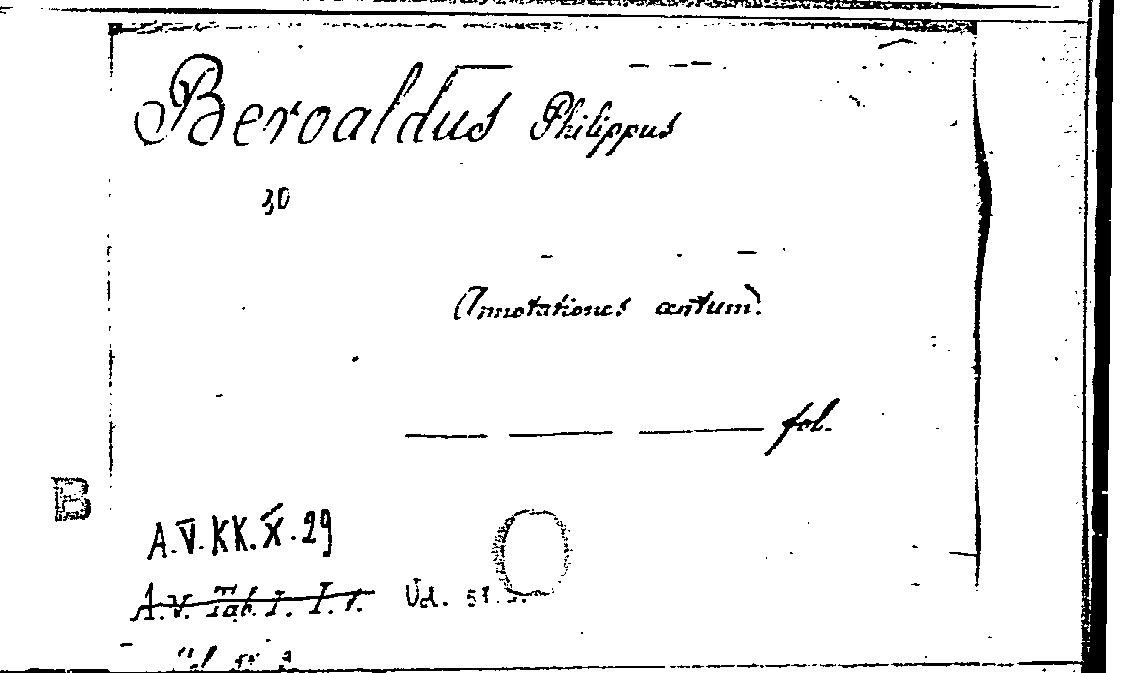 Beroaldus Philippus
30
Annotationes centum.
— — — fol.
B
A.V.KK.X.29
A.V. Tab. I. I. 1. Ud. 51.